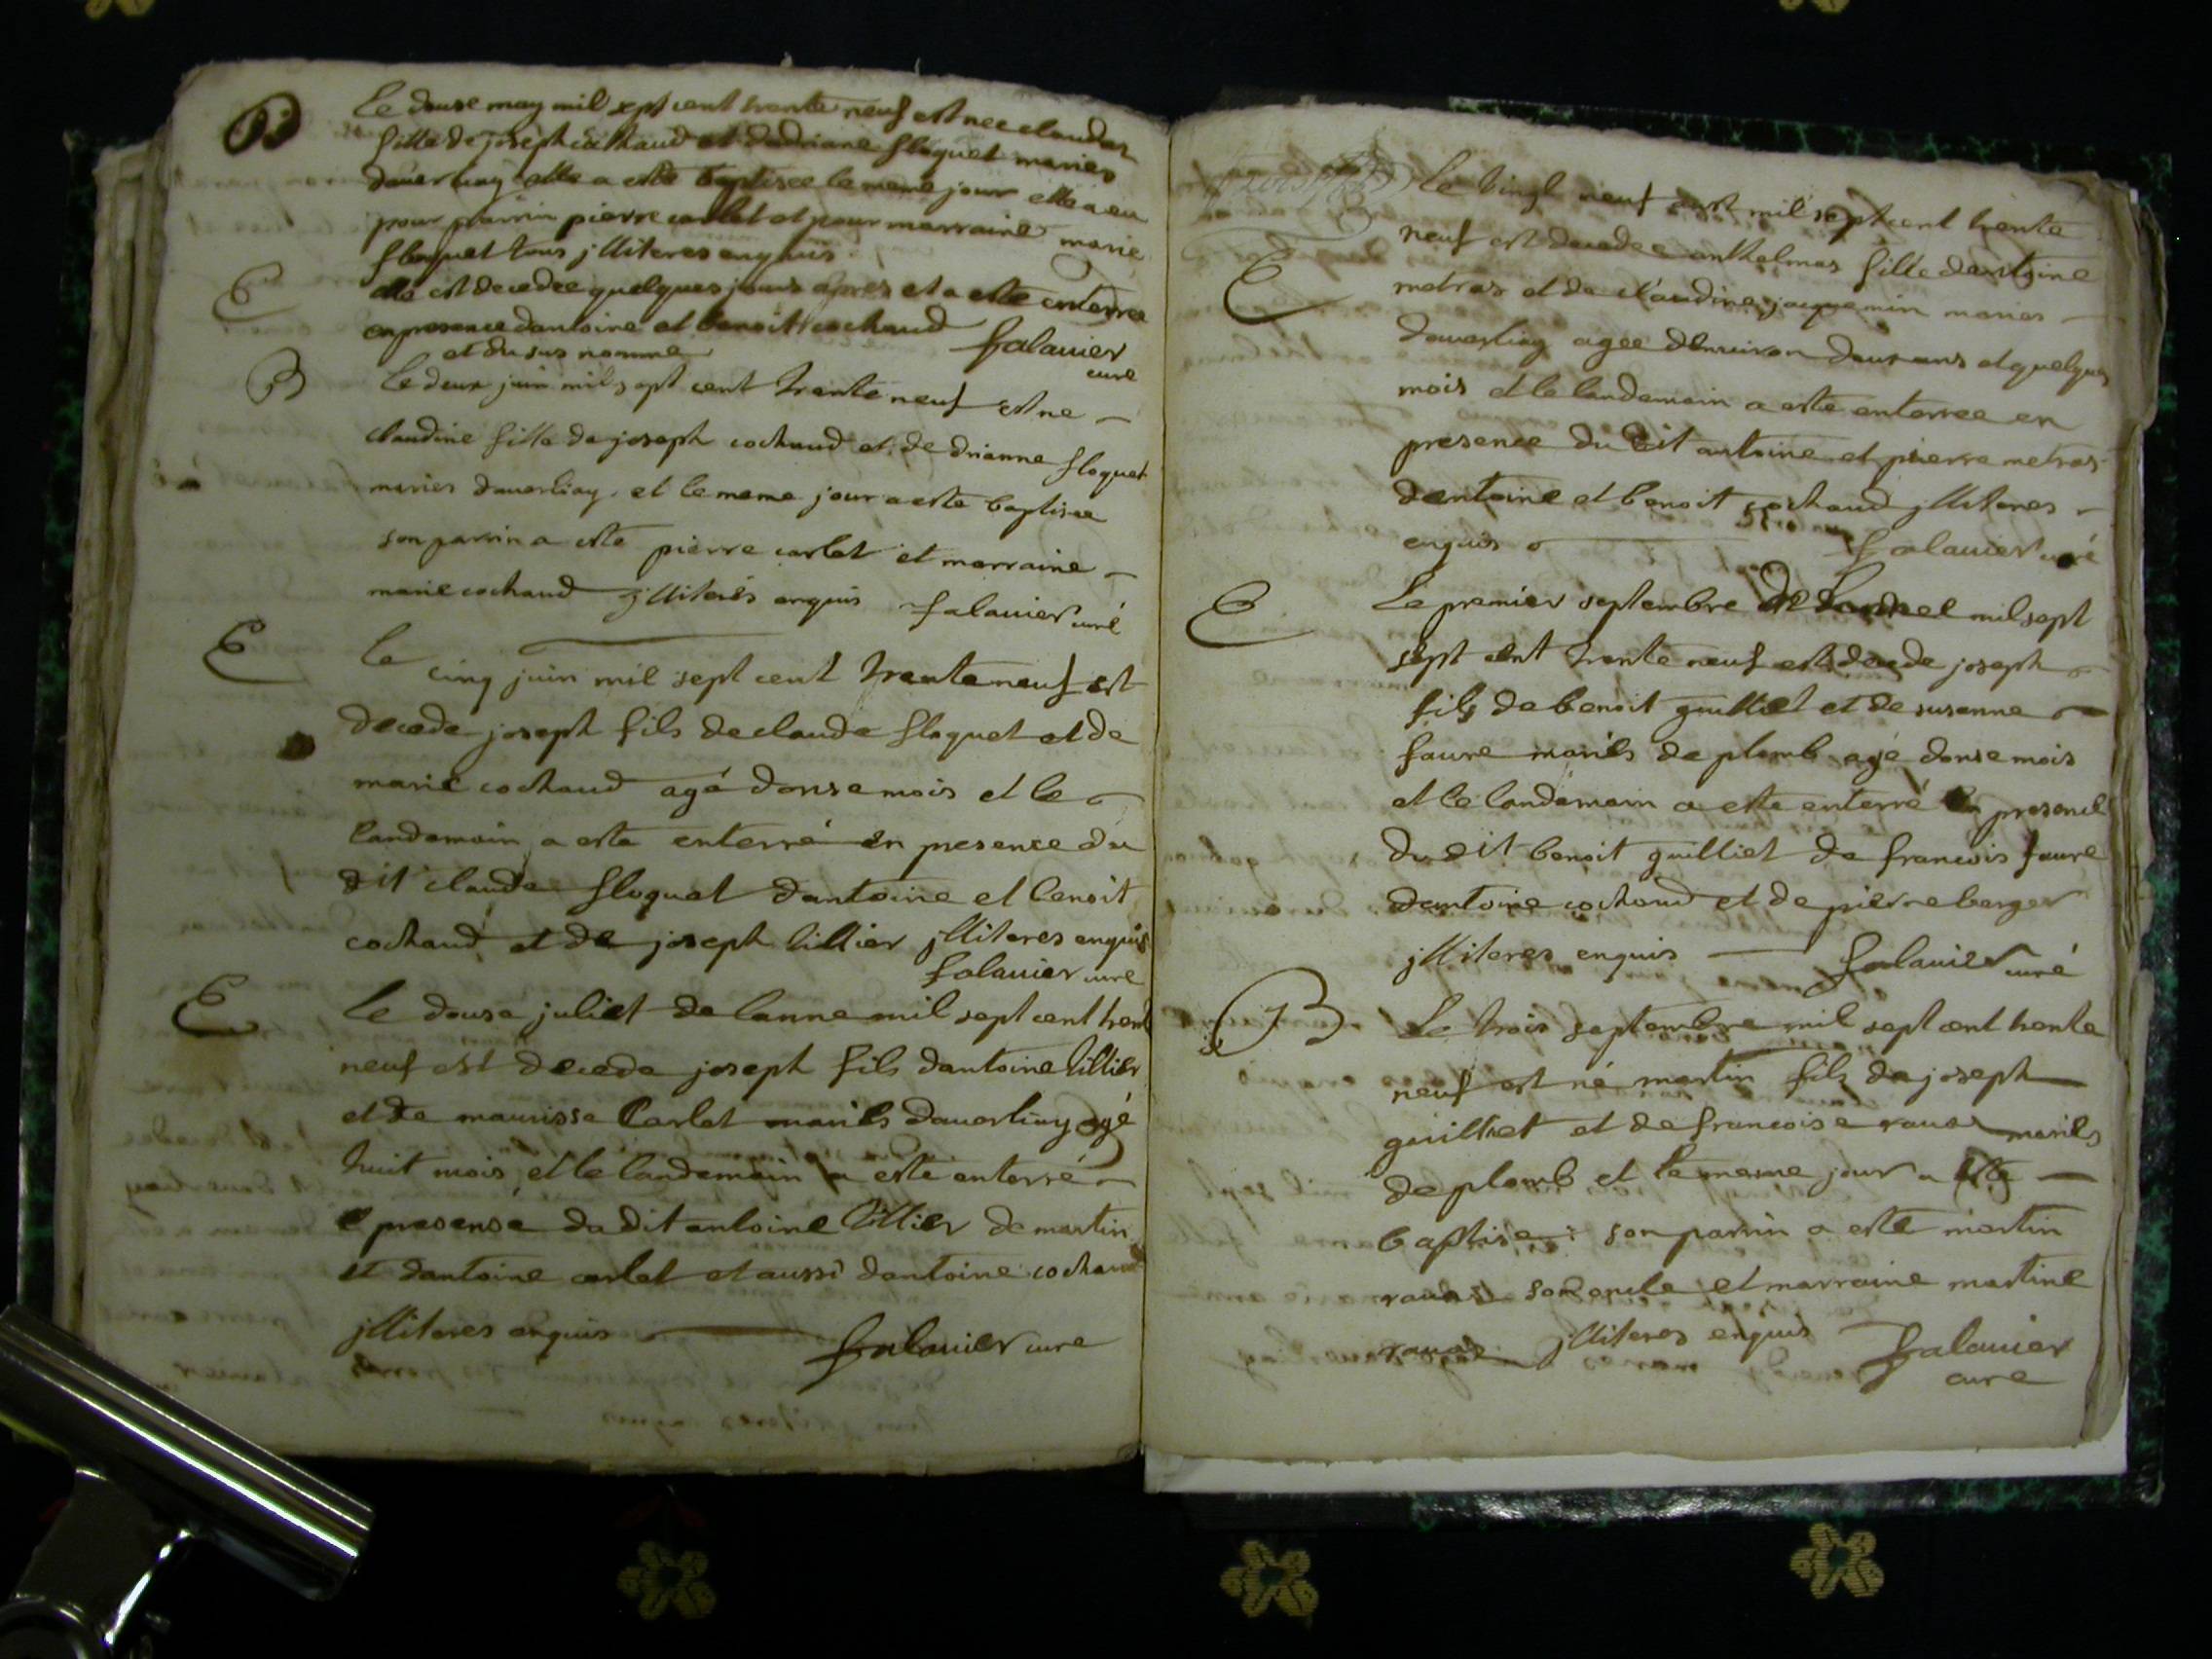 B
Le douse may mil sept cent trente neuf est nee claudine
fille de joseph cochaud et dadriane floquet maries
daverliay elle a este baptisee le meme jour elle a eu
pour parrin pierre carlet et pour marraine marie
floquet tous jlliteres enquis
E
elle est decedee quelques jours apres et a este enterree
en presence dantoine et benoit cochaud falauier
et du sus nomme cure
B
Le deux juin mil sept cent trente neuf est ne
claudine fille de joseph cochaud et de drianne floquet
maries daverliay et le meme jour a este baptisee
son parrin a este pierre carlet et marraine
marie cochaud jlliterés enquis falauier curé
E
le cinq juin mil sept cent trente neuf est
decede joseph fils de claude floquet et de
marie cochaud agé donse mois et le
landemain a este enterré en presence du
dit claude floquet dantoine et benoit
cochaud et de joseph lillier jlliteres enquis
falauier cure
E
Le douse juliet de lanne mil sept cent trent
neuf est decede joseph fils dantoine lillier
et de maurisse Carlet mariés daverliay agé
huit mois et le landemain a este enterré
e presense du dit antoine lillier de martin
et dantoine carlet et aussi dantoine cochaud
jlliteres enquis falauier cure
Le vingt neuf aust mil sept cent trente
neuf est decedee anthelmas fille dantoine
E
metras et de claudine jaquemin maries
daverliay agee denviron deux ans et quelques
mois et le landemain a este enterree en
presence du dit antoine et pierre metras
dantoine et benoit cochaud jlliteres
enquis falauier curé
E
Le premier septembre de mil sept
sept cent trente neuf est decede joseph
fils de benoit guilliet et de susanne
faure mariés de plomb agé donse mois
et le landemain a este enterré en presence
du dit benoit guilliet de francois faure
dantoine cochaud et de pierre berger
jlliteres enquis falauier curé
B
Le trois septembre mil sept cent trente
neuf est né martin fils de joseph
guilliet et de francoise mariés
de plomb et le mesme jour a este
baptise : son parrin a este martin
son oncle et marraine martine
jlliteres enquis falauier
cure